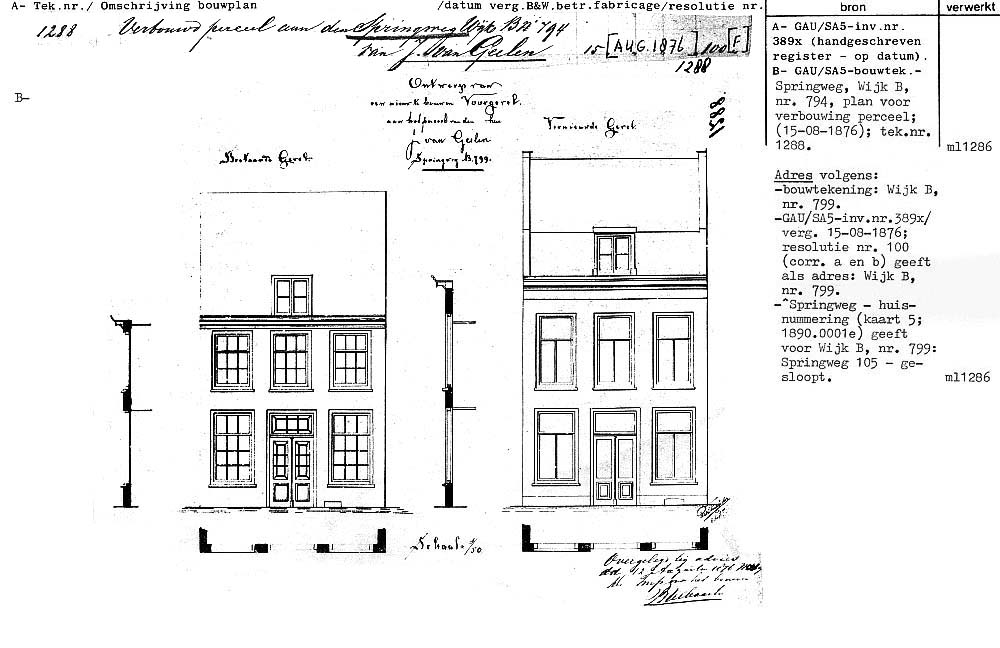 A- Tek.nr./ Omschrijving bouwplan /datum verg.B&W.betr.fabricage/resolutie nr. bron verwerkt
1288 Verbouwd perceel aan den Springweg Wijk B No 794
van J. van Geelen 15 [AUG. 1876] 100 [F]
1288
B-
Ontwerp van
een nieuw te bouwen Voorgevel.
aan het perceel van den heer
J. van Geilen
Springweg B.799.
Bestaande Gevel.
Vernieuwde Gevel.
1288
Schaal 1/50
Overgelegd bij advies
A- GAU/SA5-inv.nr.
389x (handgeschreven
register - op datum).
B- GAU/SA5-bouwtek.-
Springweg, Wijk B,
nr. 794, plan voor
verbouwing perceel;
(15-08-1876); tek.nr.
1288. ml1286
Adres volgens:
-bouwtekening: Wijk B,
nr. 799.
-GAU/SA5-inv.nr.389x/
verg. 15-08-1876;
resolutie nr. 100
(corr. a en b) geeft
als adres: Wijk B,
nr. 799.
-^Springweg - huis-
nummering (kaart 5;
1890.0001e) geeft
voor Wijk B, nr. 799:
Springweg 105 - ge-
sloopt. ml1286